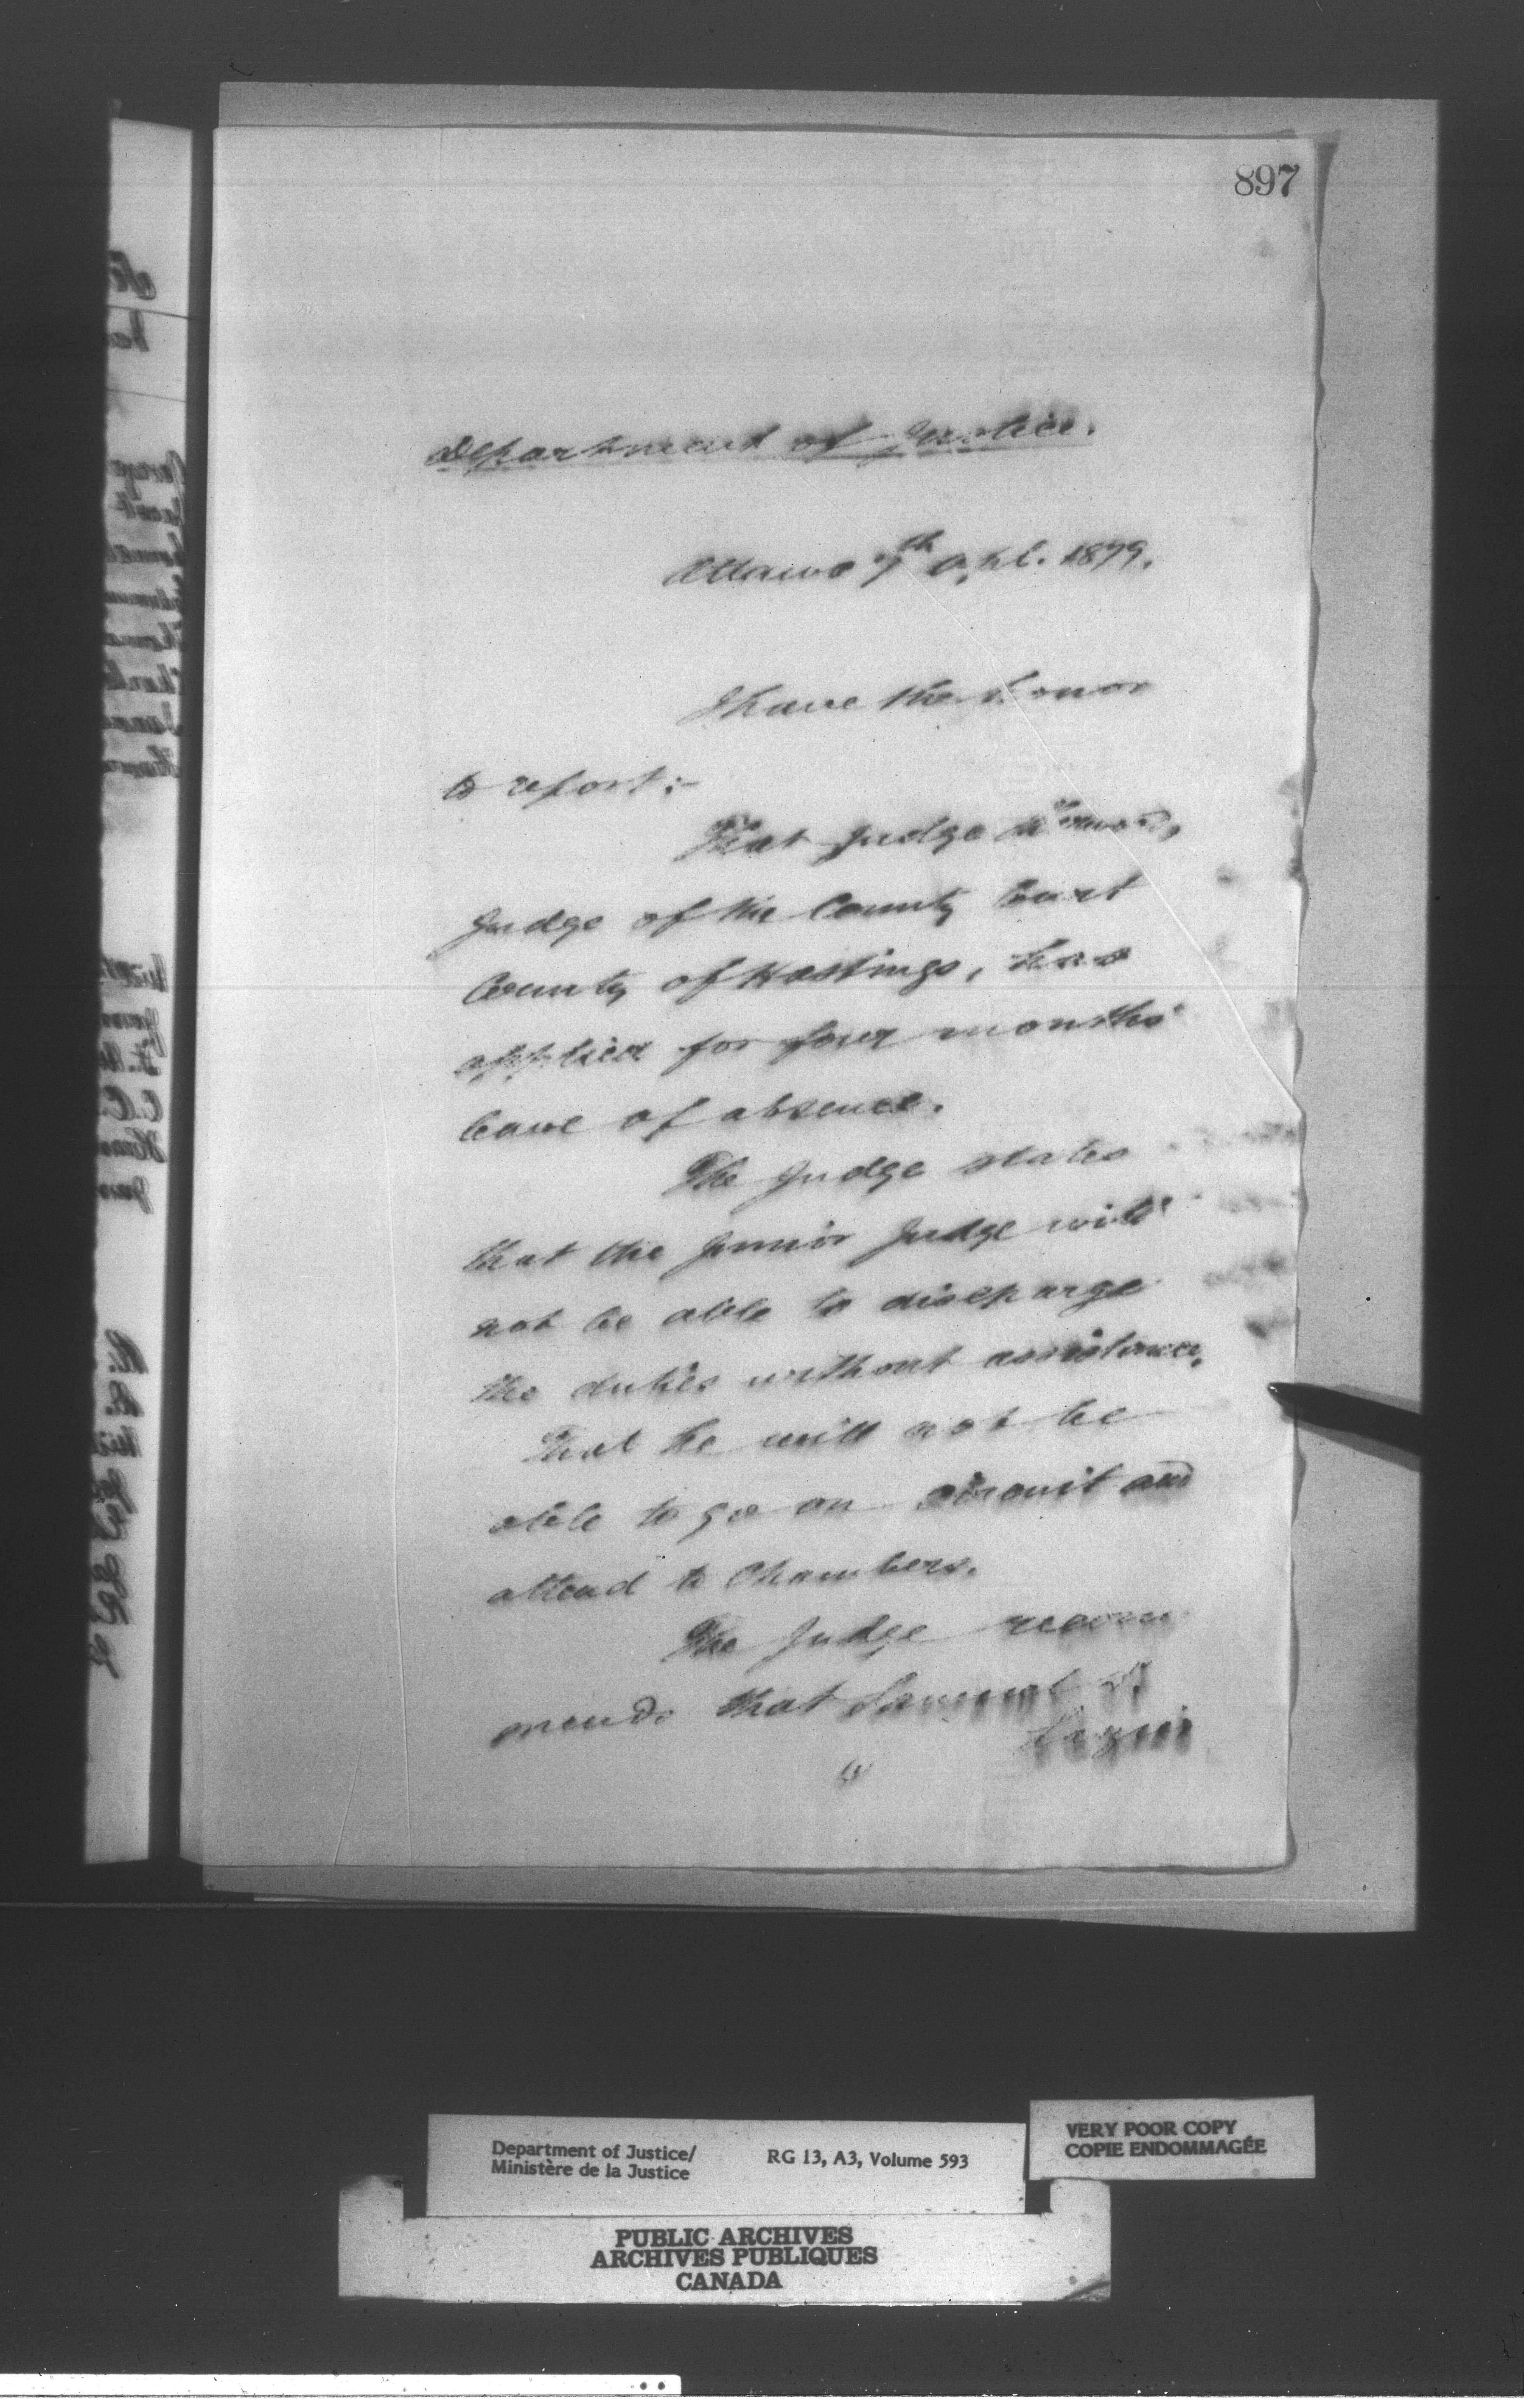 897
Department of Justice.
Ottawa 7th Apl. 1879.
I have the honor
to report:-
That Judge
Judge of the County Court
County of Hastings, has
applied for four months'
leave of absence.
The Judge states
that the Junior Judge will
not be able to discharge
the duties without assistance,
That he will not be
able to go on circuit and
attend to Chambers.
The Judge recom
mends that Samuel S.
Lazier
Department of Justice/
Ministère de la Justice
RG 13, A3, Volume 593
VERY POOR COPY
COPIE ENDOMMAGÉE
PUBLIC ARCHIVES
ARCHIVES PUBLIQUES
CANADA